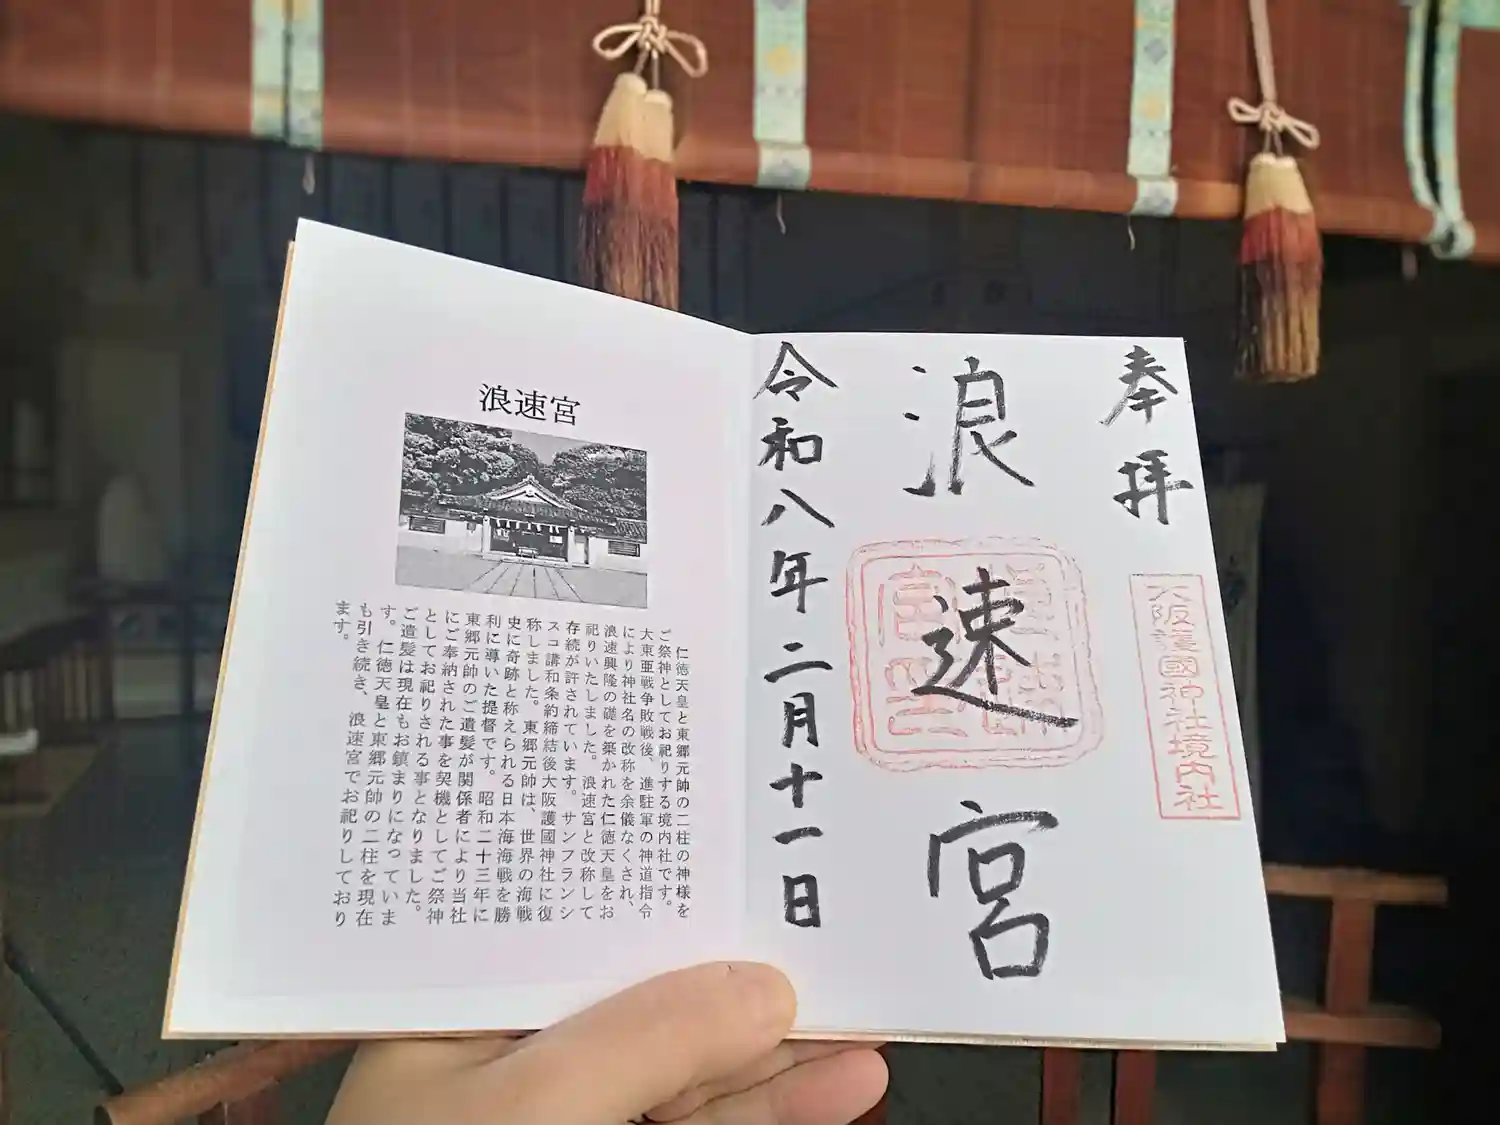 浪速宮
仁徳天皇と東郷元帥の二柱の神様を
ご祭神としてお祀りする境内社です。
大東亜戦争敗戦後、進駐軍の神道指令
により神社名の改称を余儀なくされ、
浪速興隆の礎を築かれた仁徳天皇をお
祀りいたしました。浪速宮と改称して
存続が許されています。サンフランシ
スコ講和条約締結後大阪護國神社に復
称しました。東郷元帥は、世界の海戦
史に奇跡と称えられる日本海海戦を勝
利に導いた提督です。昭和二十三年に
東郷元帥のご遺髪が関係者により当社
にご奉納された事を契機としてご祭神
としてお祀りされる事となりました。
ご遺髪は現在もお鎮まりになっていま
す。仁徳天皇と東郷元帥の二柱を現在
も引き続き、浪速宮でお祀りしており
ます。
奉拝
大阪護國神社境内社
浪速宮
令和八年二月十一日